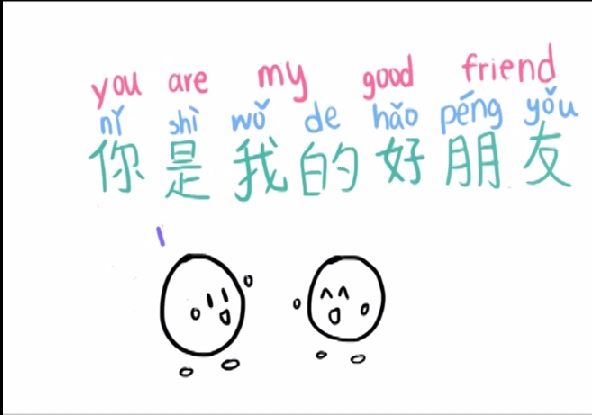 you are my good friend
nǐ shì wǒ de hǎo péng yǒu
你是我的好朋友